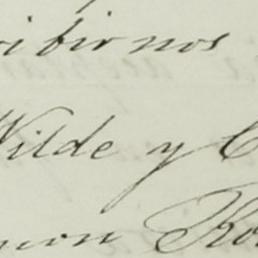 ribirnos
Wilde y C
mon Ro